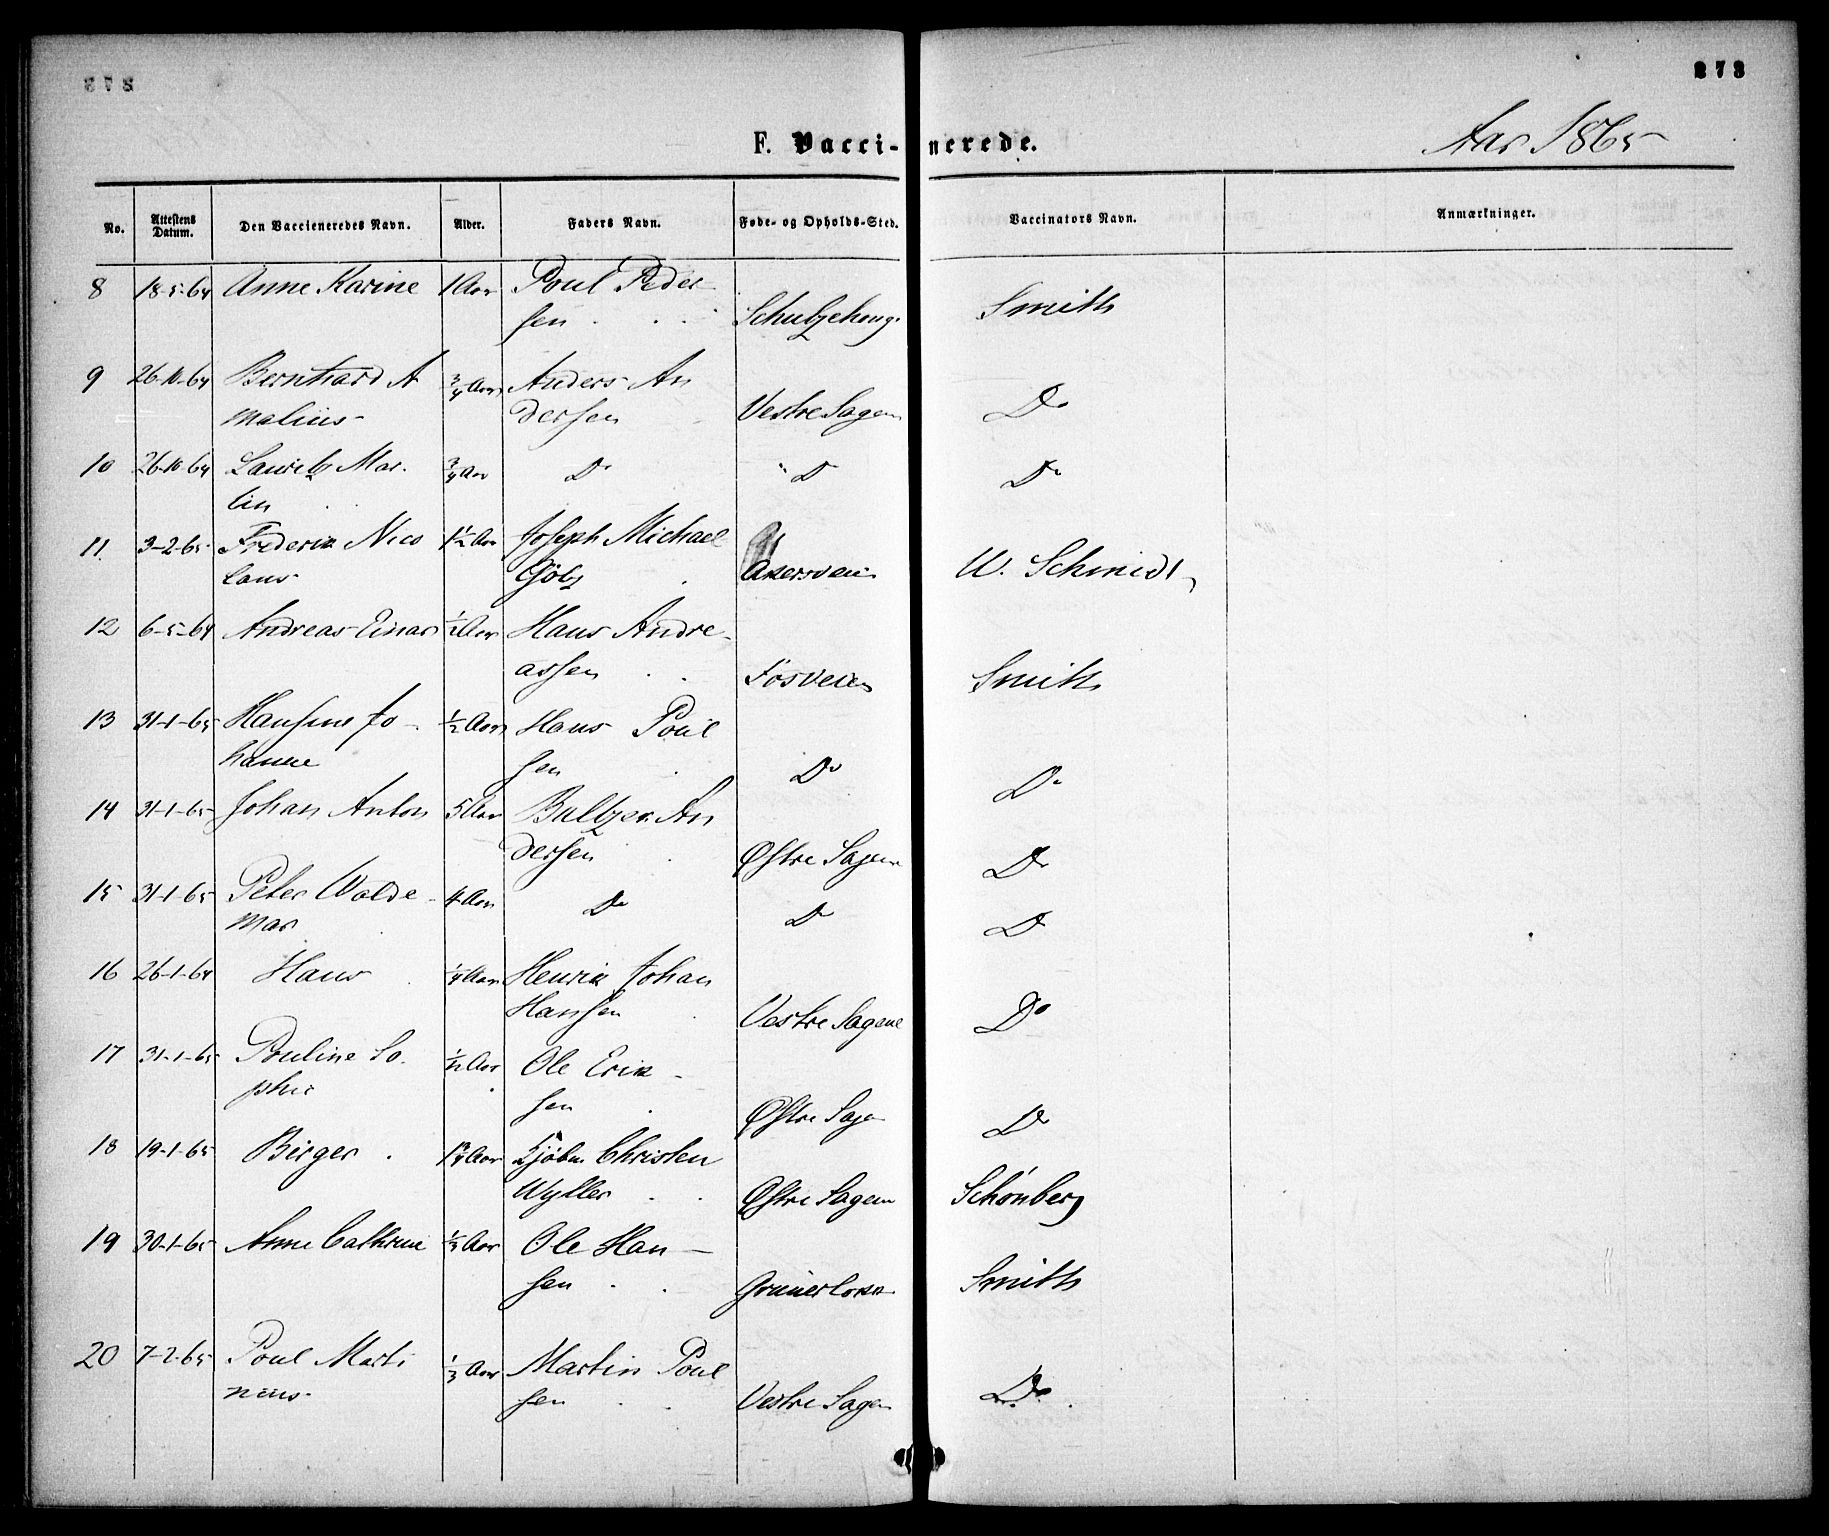 273
F. Vaccinerede.
Aar 1865
No.
Attestens Datum.
Den Vaccieneredes Navn.
Alder.
Faders Navn.
Føde- og Opholds-Sted.
Vaccinators Navn.
Anmærkninger.
8 18-5-64 Anne Karine 1 Aar Poul Peder
sen Smith
9 26-10-64 Bernhard A ¾ Aar Anders An
malius dersen Vestre Sagen Do
10 26-10-64 Lauritz Mar ¾ Aar Do Do Do
tin
11 3-2-65 Frederik Nico 1½ Aar Joseph Michael
laus Akersveien W. Schmidt
12 6-5-64 Andreas Einar Aar Hans Andre-
assen Fosveien Smith
13 31-1-65 Hansine Jo- ½ Aar Hans Poul
hanne sen Do Do
14 31-1-65 Johan Anton 5 Aar Baltzer An
dersen Østre Sagene Do
15 31-1-65 Peter Walde- 4 Aar Do Do Do
mar
16 26-1-64 Hans ¼ Aar Henrik Johan
Hansen Vestre Sagene Do
17 31-1-65 Pauline So. Aar Ole Erik-
phie sen Østre Sage Do
18 19-1-65 Birger Aar Christen
Wyller Østre Sagene Schönberg
19 30-1-65 Anne Cathrine Aar Ole Han-
sen Grünerløkk Smith
20 7-2-65 Poul Marti ⅓ Aar Martin Poul
nius sen Vestre Sagen Do